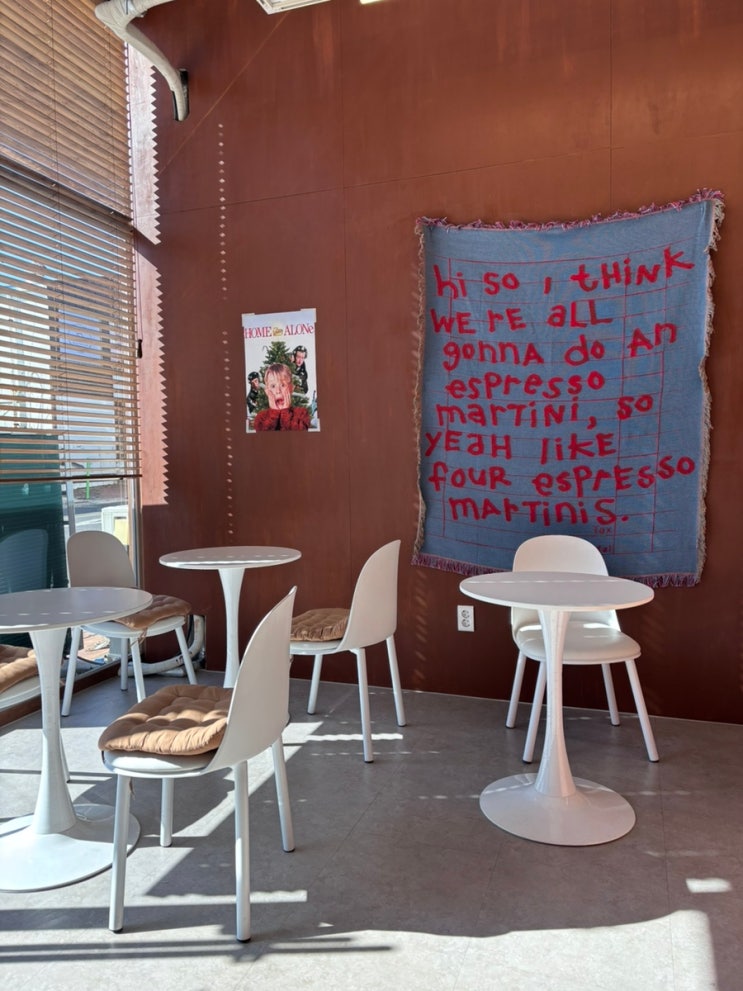 HOME ALONe
hi so i tHiNK
WE'RE aLL
gonnA do An
espresso
maRTiNi, so
YEaH liKE
foUR espREsso
maRTiNiS.